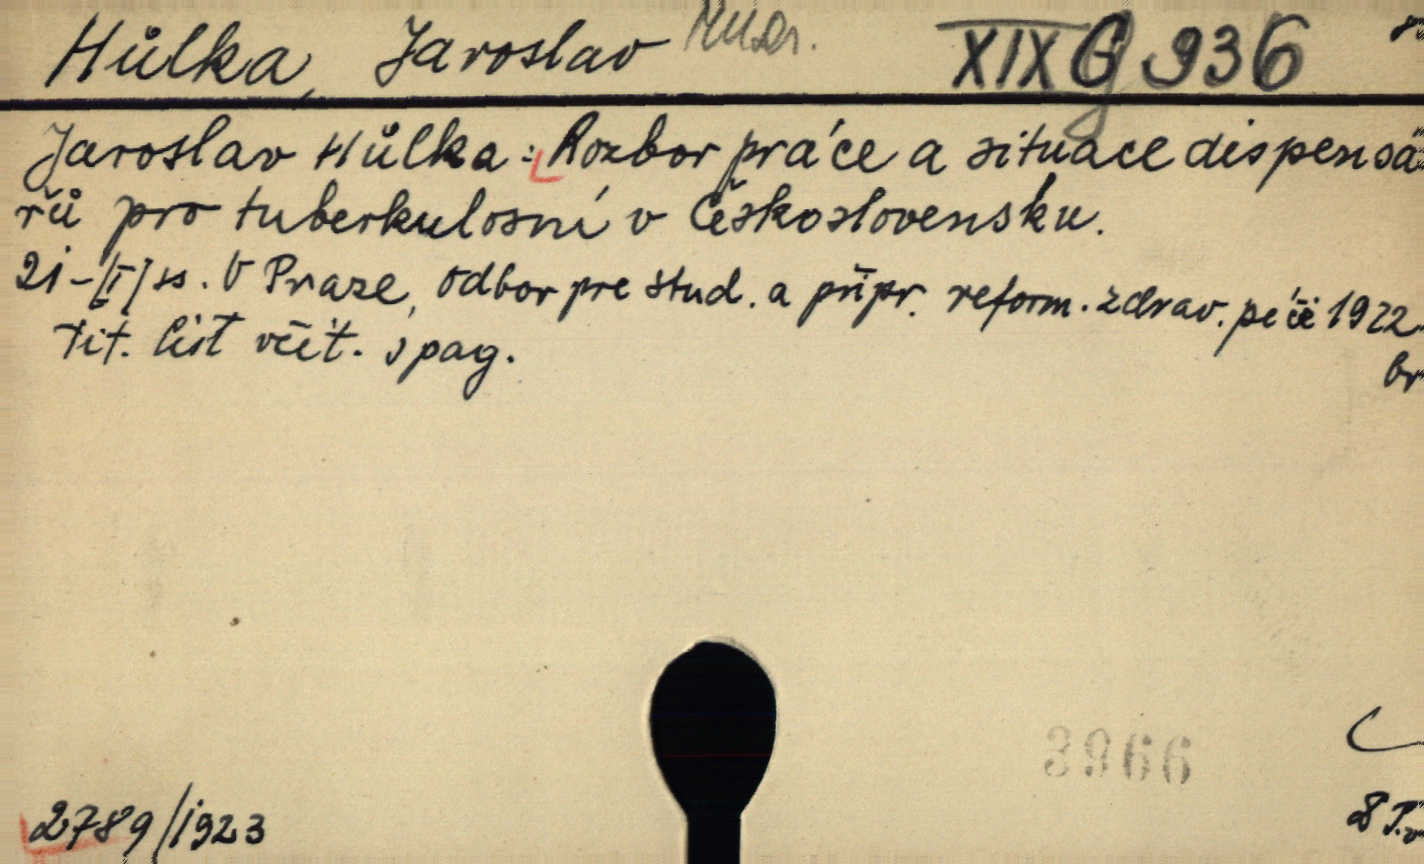 Hůlka, Jaroslav MUDr. XIX G 936 8°
Jaroslav Hůlka: Rozbor práce a situace dispensá-
řů pro tuberkulosní v Československu.
21-[I] ss. V Praze, Odbor pre stud. a přípr. reform. zdrav. péče 1922.
Tit. list včít. s pag.
br
3966
2789/1923